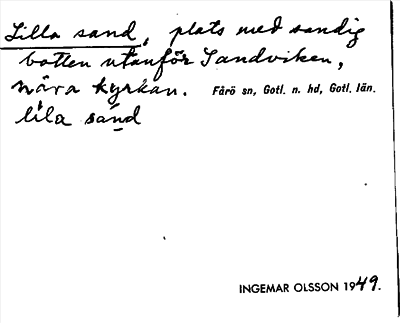 Lilla sand, plats med sandig
botten utanför Sandviken,
nära kyrkan. Fårö sn, Gotl. n. hd, Gotl. län.
lila sand
INGEMAR OLSSON 1949.